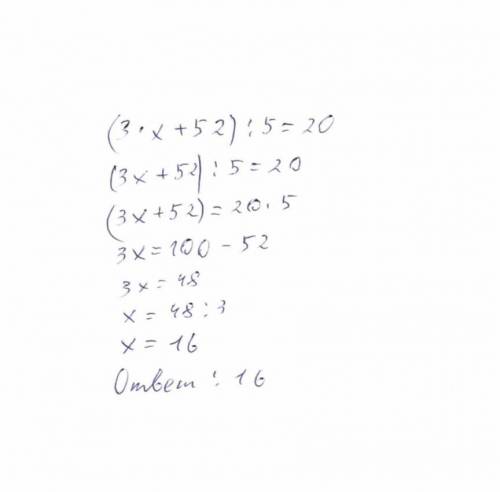 (3·x+52):5=20
(3x+52):5=20
(3x+52)=20·5
3x=100-52
3x=48
x=48:3
x=16
Ответ: 16